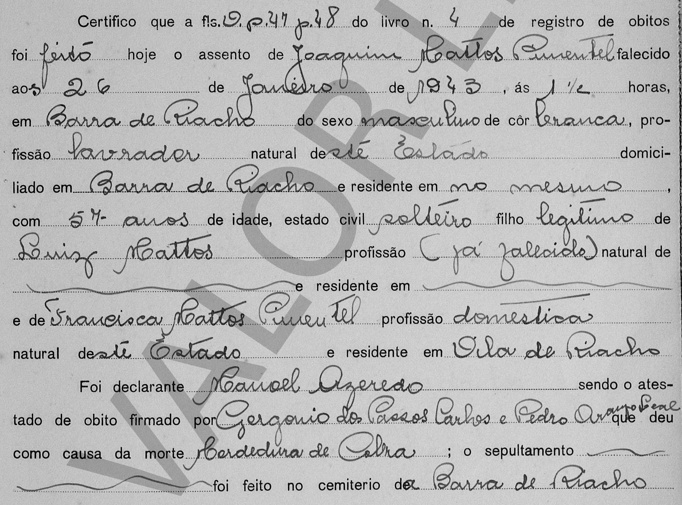 Certifico que a fls. V. p.47 p.48 do livro n. 4 de registro de obitos
foi feito hoje o assento de Joaquim Mattos Pimentel falecido
aos 26 de Janeiro de 1943, ás 1 1/2 horas,
em Barra de Riacho do sexo masculino de côr branca, pro-
fissão lavrador natural deste Estado domici-
liado em Barra de Riacho e residente em no mesmo,
com 57- anos de idade, estado civil solteiro filho legitimo de
Luiz Mattos profissão (já falecido) natural de
e residente em
e de Francisca Mattos Pimentel profissão domestica
natural deste Estado e residente em Vila de Riacho
Foi declarante Manoel Azeredo sendo o ates-
tado de obito firmado por Gergonio dos Passos Carhos e Pedro Araujo Leal que deu
como causa da morte Mordedura de Cobra ; o sepultamento
foi feito no cemiterio de Barra de Riacho
VALOR